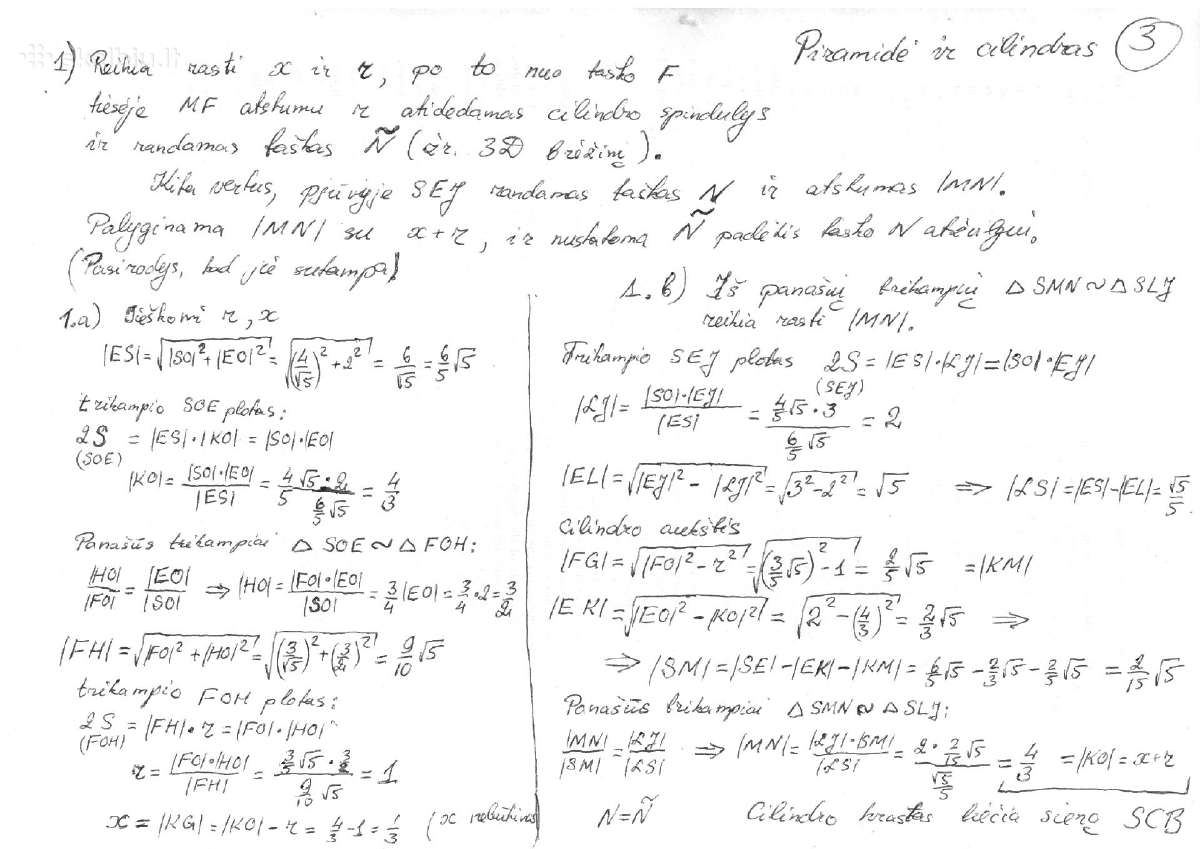 Piramidė ir cilindras (3)
1) Reikia rasti x ir r, po to nuo taško F
tiesėje MF atstumu r atidedamas cilindro spindulys
ir randamas taškas Ñ (žr. 3D brėžinį).
Kita vertus, pjūvyje SEJ randamas taškas N ir atstumas |MN|.
Palyginama |MN| su x+r, ir nustatoma Ñ padėtis taško N atžvilgiu.
(Pasirodys, kad jie sutampa)
1.a) Ieškomi r, x
|ES| = √(|SO|² + |EO|²) = √((4/√5)² + 2²) = 6/√5 = 6/5 √5
trikampio SOE plotas:
2S (SOE) = |ES|·|KO| = |SO|·|EO|
|KO| = |SO|·|EO| / |ES| = (4/5 √5 · 2) / (6/5 √5) = 4/3
Panašūs trikampiai △SOE ~ △FOH:
|HO|/|FO| = |EO|/|SO| ⇒ |HO| = |FO|·|EO| / |SO| = 3/4 |EO| = 3/4 · 2 = 3/2
|FH| = √(|FO|² + |HO|²) = √((3/√5)² + (3/2)²) = 9/10 √5
trikampio FOH plotas:
2S (FOH) = |FH|·r = |FO|·|HO|
r = |FO|·|HO| / |FH| = (3/5 √5 · 3/2) / (9/10 √5) = 1
x = |KG| = |KO| - r = 4/3 - 1 = 1/3 (x nebūtinas)
1.b) Iš panašių trikampių △SMN ~ △SLJ
reikia rasti |MN|.
Trikampio SEJ plotas 2S (SEJ) = |ES|·|LJ| = |SO|·|EJ|
|LJ| = |SO|·|EJ| / |ES| = (4/5 √5 · 3) / (6/5 √5) = 2
|EL| = √(|EJ|² - |LJ|²) = √(3² - 2²) = √5 ⇒ |LS| = |ES| - |EL| = √5/5.
Cilindro aukštis
|FG| = √(|FO|² - r²) = √((3/5 √5)² - 1) = 2/5 √5 = |KM|
|EK| = √(|EO|² - |KO|²) = √(2² - (4/3)²) = 2/3 √5 ⇒
⇒ |SM| = |SE| - |EK| - |KM| = 6/5 √5 - 2/3 √5 - 2/5 √5 = 2/15 √5
Panašūs trikampiai △SMN ~ △SLJ:
|MN|/|SM| = |LJ|/|LS| ⇒ |MN| = |LJ|·|SM| / |LS| = (2 · 2/15 √5) / (√5/5) = 4/3 = |KO| = x+r
N = Ñ Cilindro kraštas liečia sieną SCB